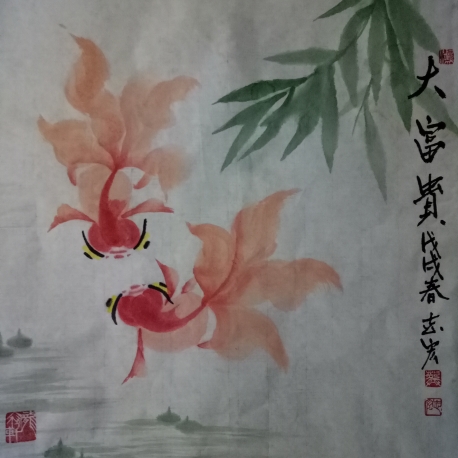 大富貴
戊戌春志宏